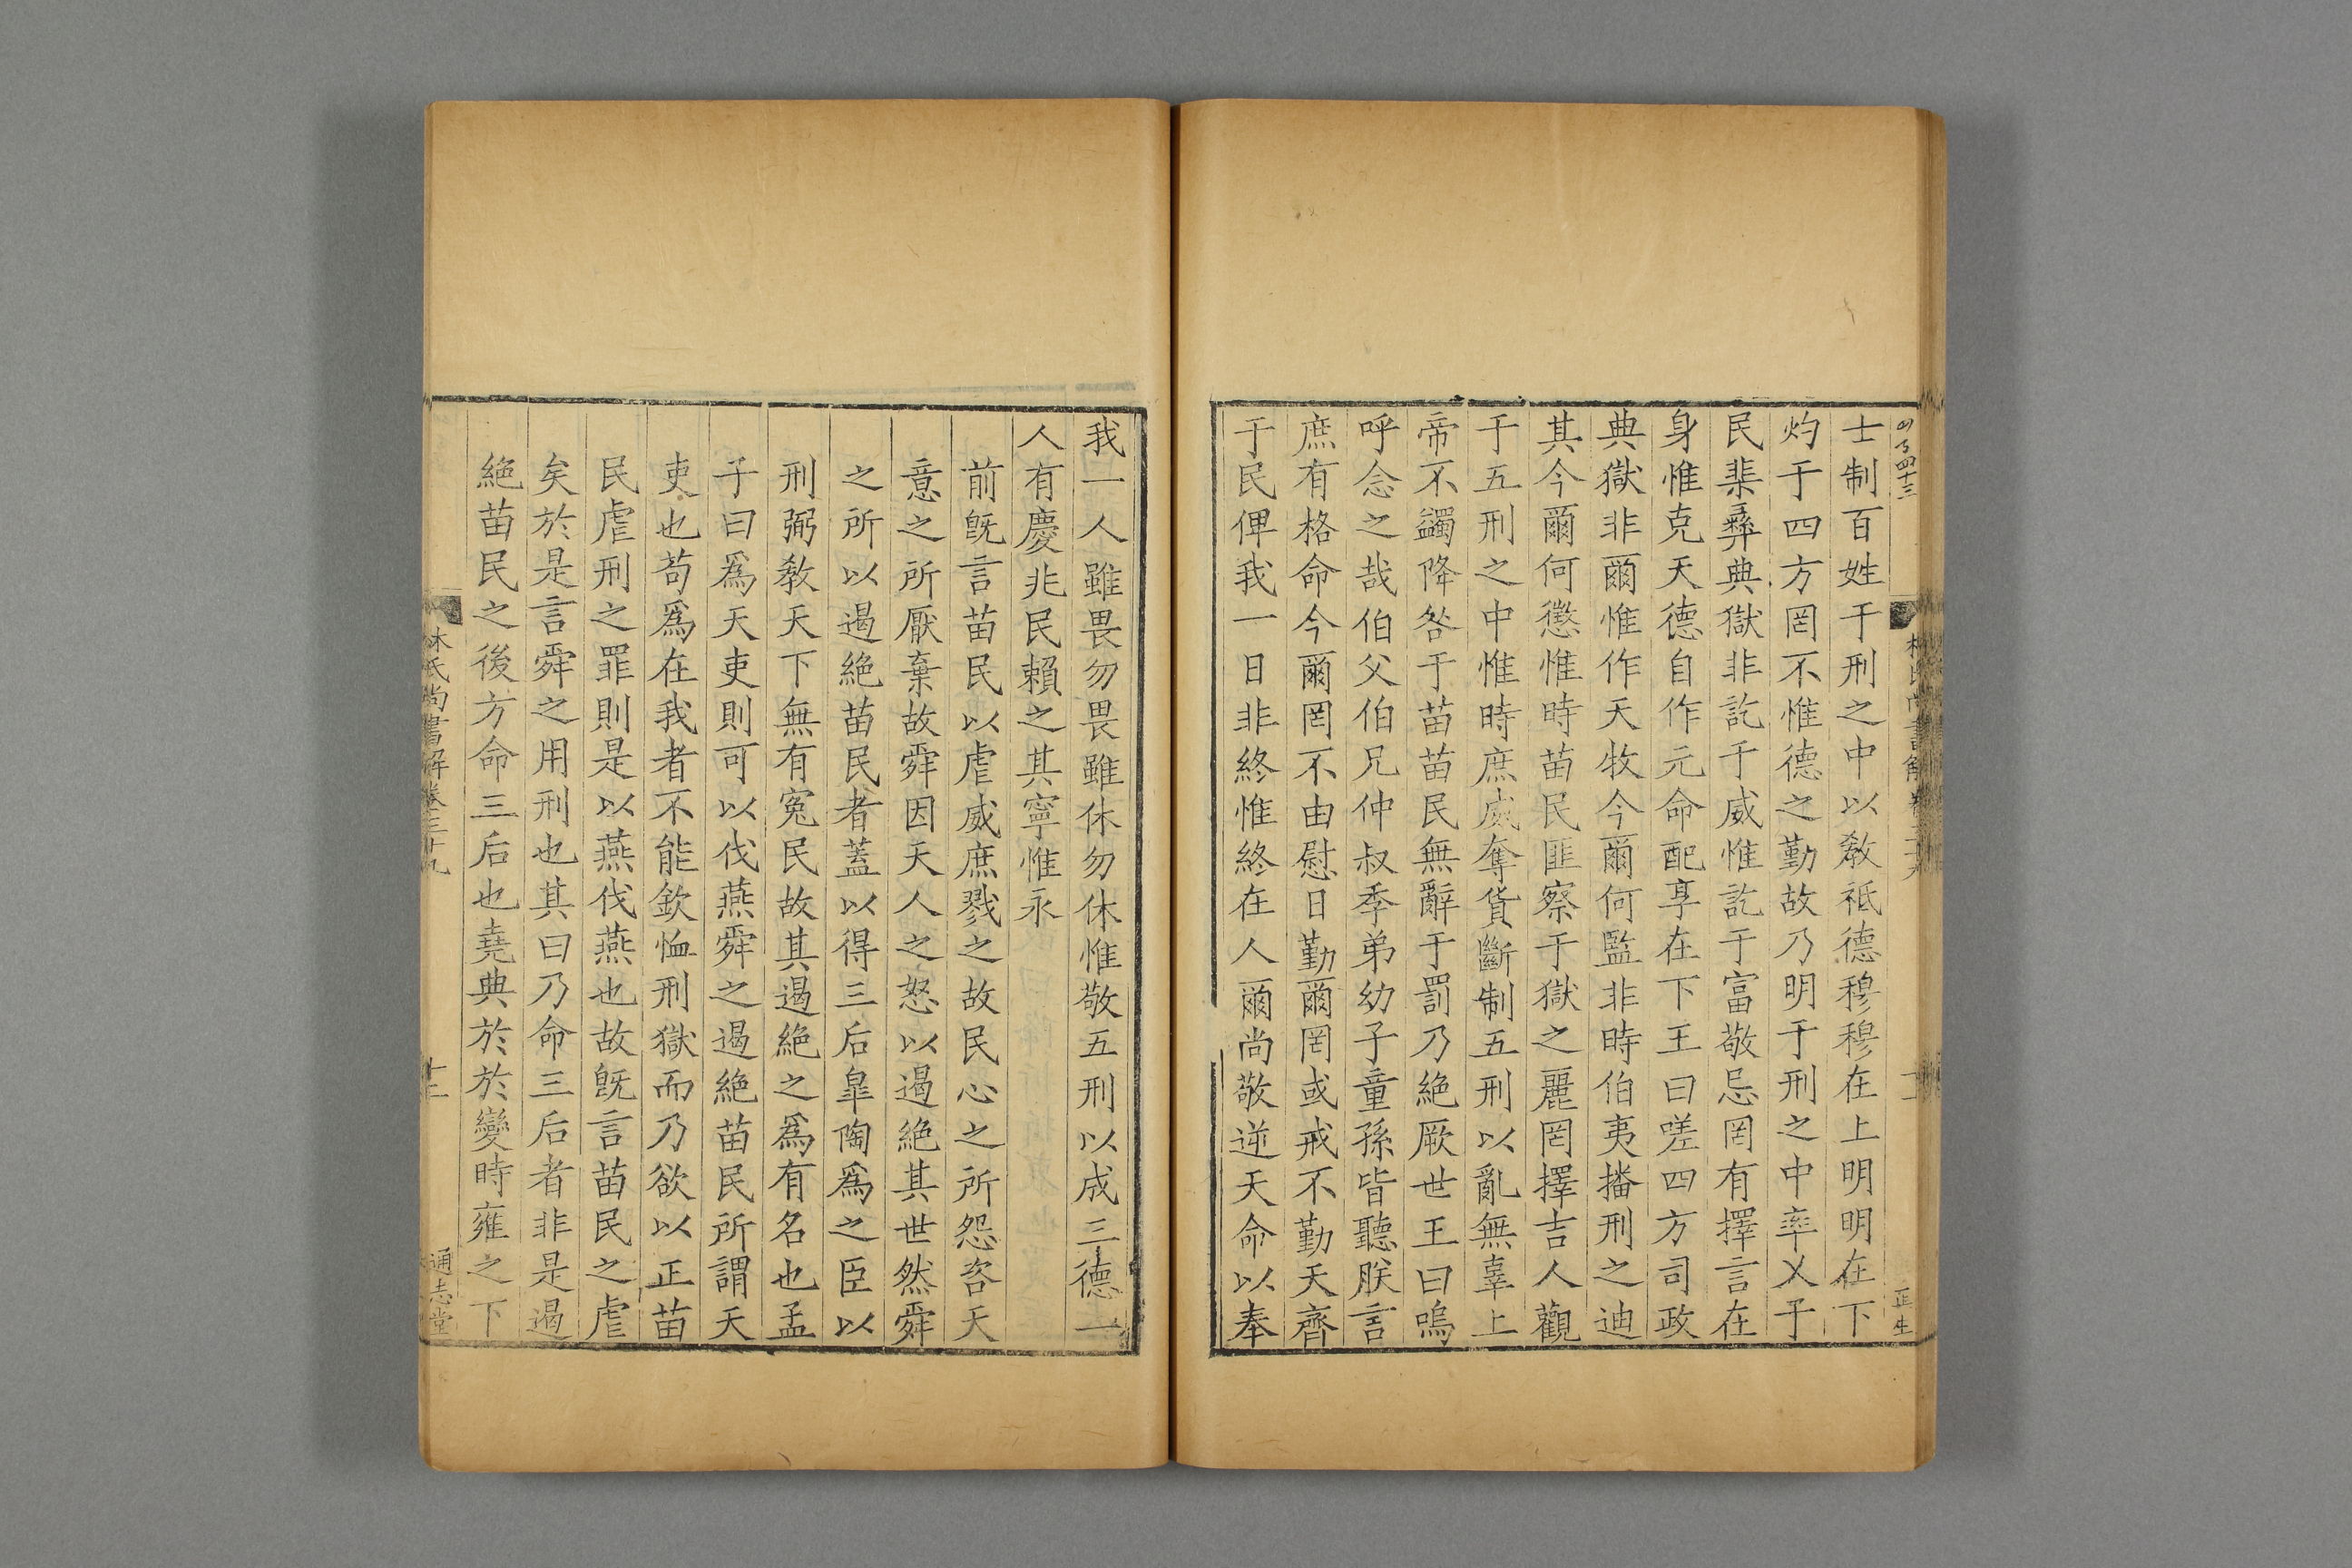 士制百姓于刑之中以敎祗德穆穆在上明明在下
灼于四方罔不惟德之勤故乃明于刑之中率乂于
民棐彝典獄非訖于威惟訖于富敬忌罔有擇言在
身惟克天德自作元命配享在下王曰嗟四方司政
典獄非爾惟作天牧今爾何監非時伯夷播刑之迪
其今爾何懲惟時苗民匪察于獄之麗罔擇吉人觀
于五刑之中惟時庶威奪貨斷制五刑以亂無辜上
帝不蠲降咎于苗苗民無辭于罰乃絕厥世王曰嗚
呼念之哉伯父伯兄仲叔季弟幼子童孫皆聽朕言
庶有格命今爾罔不由慰日勤爾罔或戒不勤天齊
于民俾我一日非終惟終在人爾尚敬逆天命以奉
我一人雖畏勿畏雖休勿休惟敬五刑以成三德一
人有慶兆民賴之其寧惟永
前旣言苗民以虐威庶戮之故民心之所怨咨天
意之所厭棄故舜因天人之怒以遏絕其世然舜
之所以遏絕苗民者蓋以得三后皐陶爲之臣以
刑弼敎天下無有冤民故其遏絕之爲有名也孟
子曰爲天吏則可以伐燕舜之遏絕苗民所謂天
吏也苟爲在我者不能欽恤刑獄而乃欲以正苗
民虐刑之罪則是以燕伐燕也故旣言苗民之虐
矣於是言舜之用刑也其曰乃命三后者非是遏
絕苗民之後方命三后也堯典於於變時雍之下
林氏尚書解卷三十九
十二
通志堂